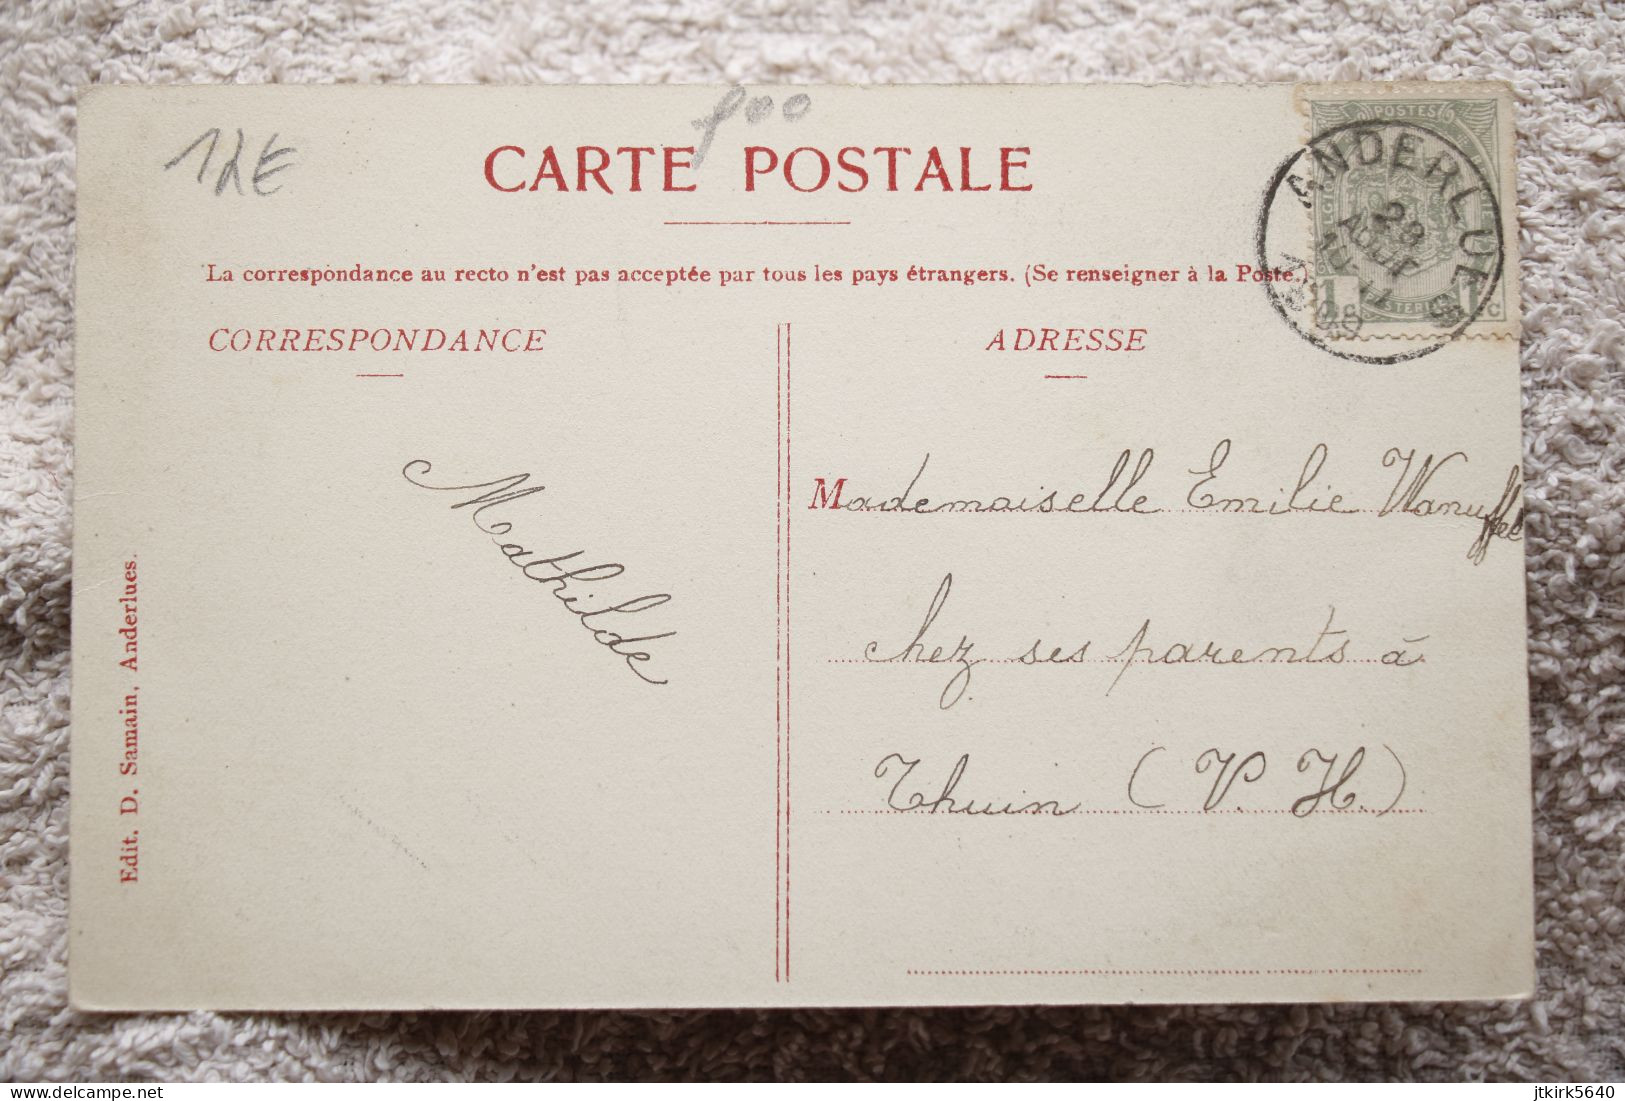 12E
900
CARTE POSTALE
La correspondance au recto n'est pas acceptée par tous les pays étrangers. (Se renseigner à la Poste.)
CORRESPONDANCE
ADRESSE
POSTES
ANDERLUES
28
AOUT
Mathilde
Mademoiselle Emilie Wanuffel
chez ses parents à
Thuin (V. H.)
Edit. D. Samain, Anderlues.
delcampe.net
jtkirk5640